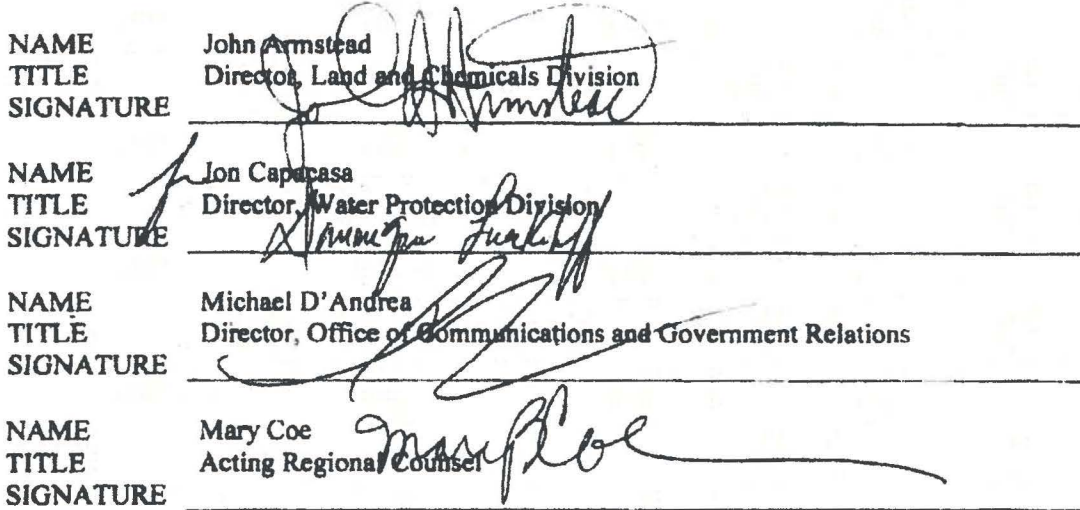 NAME John Armstead
TITLE Director, Land and Chemicals Division
SIGNATURE John A Armstead
NAME Jon Capacasa
TITLE Director, Water Protection Division
SIGNATURE
NAME Michael D'Andrea
TITLE Director, Office of Communications and Government Relations
SIGNATURE
NAME Mary Coe
TITLE Acting Regional Counsel
SIGNATURE Mary B Coe